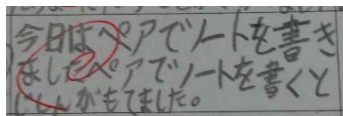 今日はペアでノートを書き
ましたペアでノートを書くと
じしんがもてました。